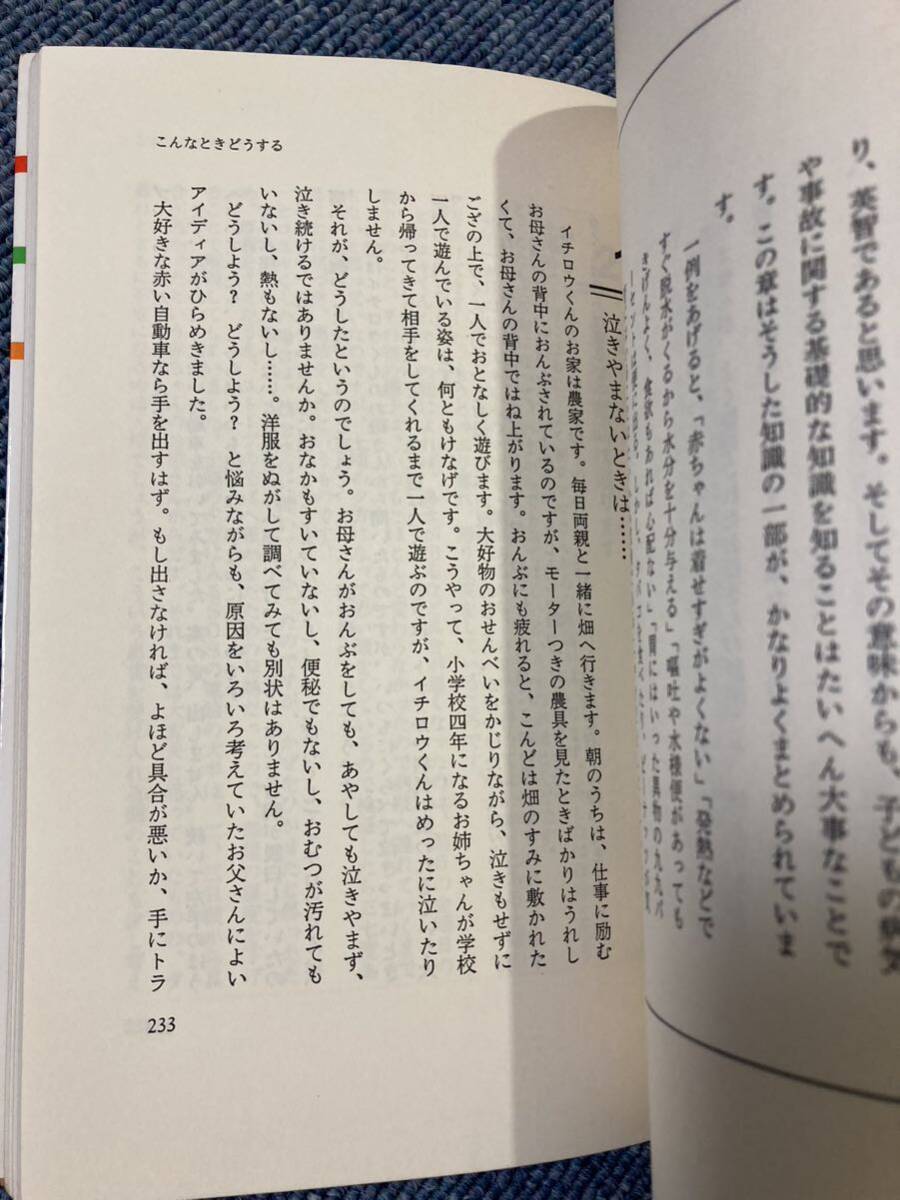 り、英智であると思います。そしてその意味からも、子どもの病気
や事故に関する基礎的な知識を知ることはたいへん大事なことで
す。この章はそうした知識の一部が、かなりよくまとめられていま
す。
一例をあげると、「赤ちゃんは着せすぎがよくない」「発熱などで
すぐ脱水がくるから水分を十分与える」「嘔吐や水様便があっても
きげんよく、食欲もあれば心配ない」「胃にはいった異物の九九パ
こんなときどうする
泣きやまないときは……
イチロウくんのお家は農家です。毎日両親と一緒に畑へ行きます。朝のうちは、仕事に励む
お母さんの背中におんぶされているのですが、モーターつきの農具を見たときばかりはうれし
くて、お母さんの背中ではね上がります。おんぶにも疲れると、こんどは畑のすみに敷かれた
ござの上で、一人でおとなしく遊びます。大好物のおせんべいをかじりながら、泣きもせずに
一人で遊んでいる姿は、何ともけなげです。こうやって、小学校四年になるお姉ちゃんが学校
から帰ってきて相手をしてくれるまで一人で遊ぶのですが、イチロウくんはめったに泣いたり
しません。
それが、どうしたというのでしょう。お母さんがおんぶをしても、あやしても泣きやまず、
泣き続けるではありませんか。おなかもすいていないし、便秘でもないし、おむつが汚れても
いないし、熱もないし……。洋服をぬがして調べてみても別状はありません。
どうしよう？ どうしよう？ と悩みながらも、原因をいろいろ考えていたお父さんによい
アイディアがひらめきました。
大好きな赤い自動車なら手を出すはず。もし出さなければ、よほど具合が悪いか、手にトラ
233